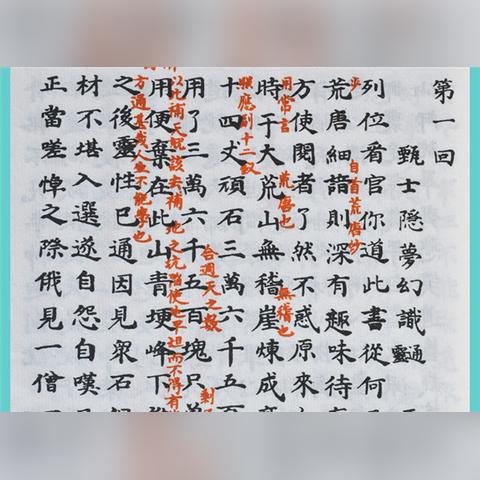 第一回
甄士隐夢幻識通靈
列位看官你道此書從何
自首荒唐妙
荒唐細諳則深有趣味待
方使閱者了然不惑原來
用常言 荒唐也 無稽也
時于大荒山無稽崖煉成
照應副十二釵
十四丈頑石三萬六千五
合週天之數
用了三萬六千五百塊只
剩
補天 該去補地之坑陷使地平坦而不得有
用便棄在此山青埂峰下
之後靈性已通因見衆石
材不堪入選遂自怨自嘆
正當嗟悼之際俄見一僧